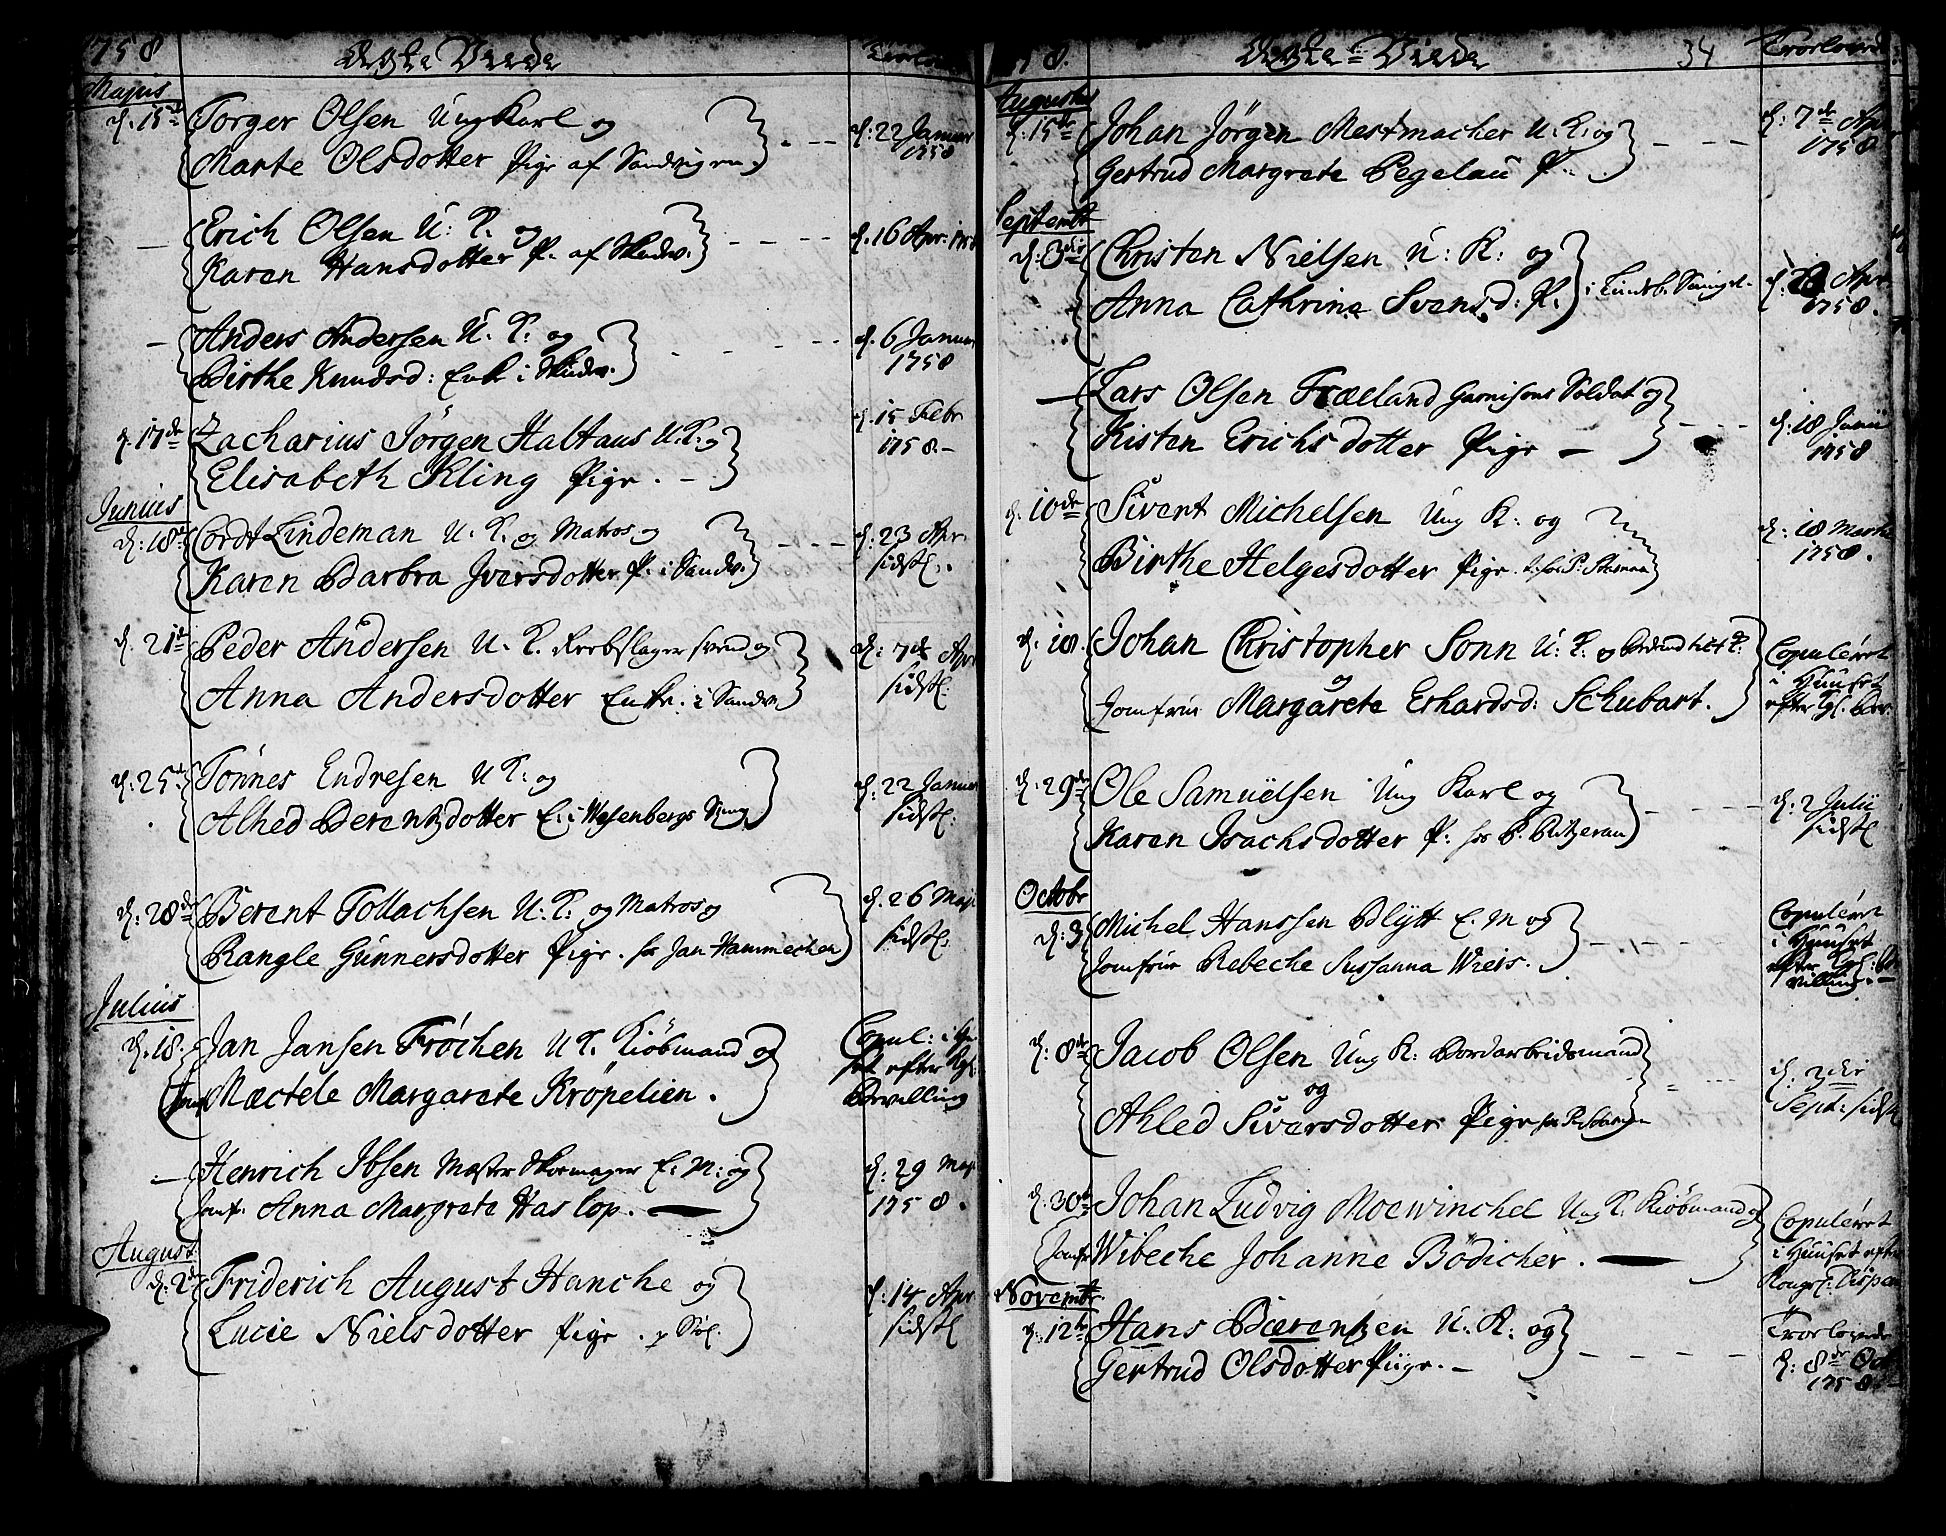 1758 Ægte Viede Trolov
Majus
d. 15de Torger Olsen Ung Karl og
Marte Olsdotter Pige af Sandvigen
d. 22 Januar
1758
Erich Olsen U: K. og
Karen Hansdotter P. af Skudev.
d. 16 Apr: 1758
Anders Andersen U. K. og
Birthe Knudsd: Enke i Skudev.
d. 6 Januar
1758
d. 17de Zacharius Jörgen Haltaus U. K. og
Elisabeth Kling Pige.
d. 15 Febr
1758.
Junius
d: 18de Cordt Lindeman U. K. og Matros og
Karen Barbra Jversdotter P. i Sandv.
d: 23 Apr.
sidstl.
d. 21de Peder Andersen U. K. Reebslager svend og
Anna Andersdotter Enke. i Sandv.
d: 7de Apr
sidstl:
d: 25de Tönnes Endresen U K: og
Alhed Berentzdotter E. i Wesenbergs Smug
d: 22 Januar
sidstl:
d: 28de Berent Tollachsen U: K: og Matros og
Rangle Gunnersdotter Pige. hos Jan Hammechen
d. 26 Maji
sidstl:
Julius
d. 18. Jan Jansen Fröchen U K. Kiöbmand og
Jomfr Mæctele Margarete Kröpelien.
Copul: i Hu-
set efter Kgl.
Bevilling
Henrich Ibsen Mester Skoemager E. M: og
Jomf. Anna Margrete Haslop.
d. 29 Maji
1758.
August:
d: 2de Friderich August Hanche og
Lucie Nielsdotter Pige.
d: 14 Apr
sidstl
1758. Ægte Viede 34 Trolovede
Augustus
d. 15de Johan Jörgen Mestmacher U. K: og
Gertrud Margrete Pegelau P.
d. 7de Apr
1758.
Septembr
d. 3die Christen Nielsen U: K: og
Anna Cathrine Svensd: P.
Apr
1758.
Lars Olsen Fræeland Garnisons Soldat og
Kisten Erichsdotter Pige
d: 18 Junii
1758
d. 10de Sivert Michelsen Ung K: og
Birthe Helgesdotter Pige.
d: 18 Martii
1758.
d. 18. Johan Christopher Sonn U. K. og
og
Jomfrue Margarete Erhardsd: Schubart.
Copuleret
i Huuset
efter Kgl. Bev.
d: 29de Ole Samuelsen Ung Karl og
Karen Isachsdotter P: hos B. Ritzerau
d. 2 Julii
sidstl
Octobr
d: 3 Michel Hanssen Blytt E. M og
Jomfrue Rebeche Sussanna Wieis.
Copuleret
i Huuset
efter Kgl: Be-
villing.
d: 8de Jacob Olsen Ung K: Bordarbeidsmand
og
Ahled Siversdotter Pige
d. 2die
Sept: sidstl
d. 30te Johan Ludvig Moewinchel Ung K. Kiöbmand og
Jomfr Wibeche Johanne Bödicher.
Copuleret
i Huuset efter
Kongel: Dispen
Novembr.
d: 12te Hans Bierentzen U. K: og
Gertrud Olsdotter Piige.
Trolovede
d: 8de Oct
1758.